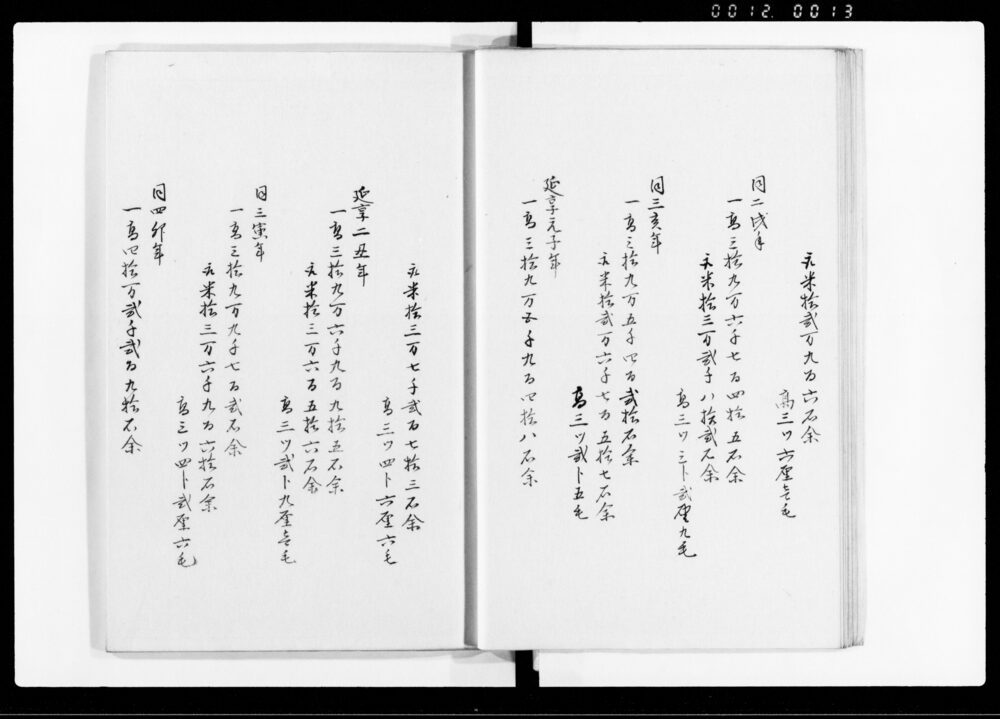 0012. 0013
取米拾弐万九百六石余
高三ツ六厘壱毛
同二戌年
一高三拾九万六千七百四拾五石余
取米拾三万弐千八拾弐石余
高三ツ三卜弐厘九毛
同三亥年
一高三拾九万五千四百弐拾石余
取米拾弐万六千七百五拾七石余
高三ツ弐卜五毛
延享元子年
一高三拾九万五千九百四拾八石余
取米拾三万七千弐百七拾三石余
高三ツ四卜六厘六毛
延享二丑年
一高三拾九万六千九百九拾五石余
取米拾三万六百五拾六石余
高三ツ弐卜九厘壱毛
同三寅年
一高三拾九万九千七百弐石余
取米拾三万六千九百六拾石余
高三ツ四卜弐厘六毛
同四卯年
一高四拾万弐千弐百九拾石余